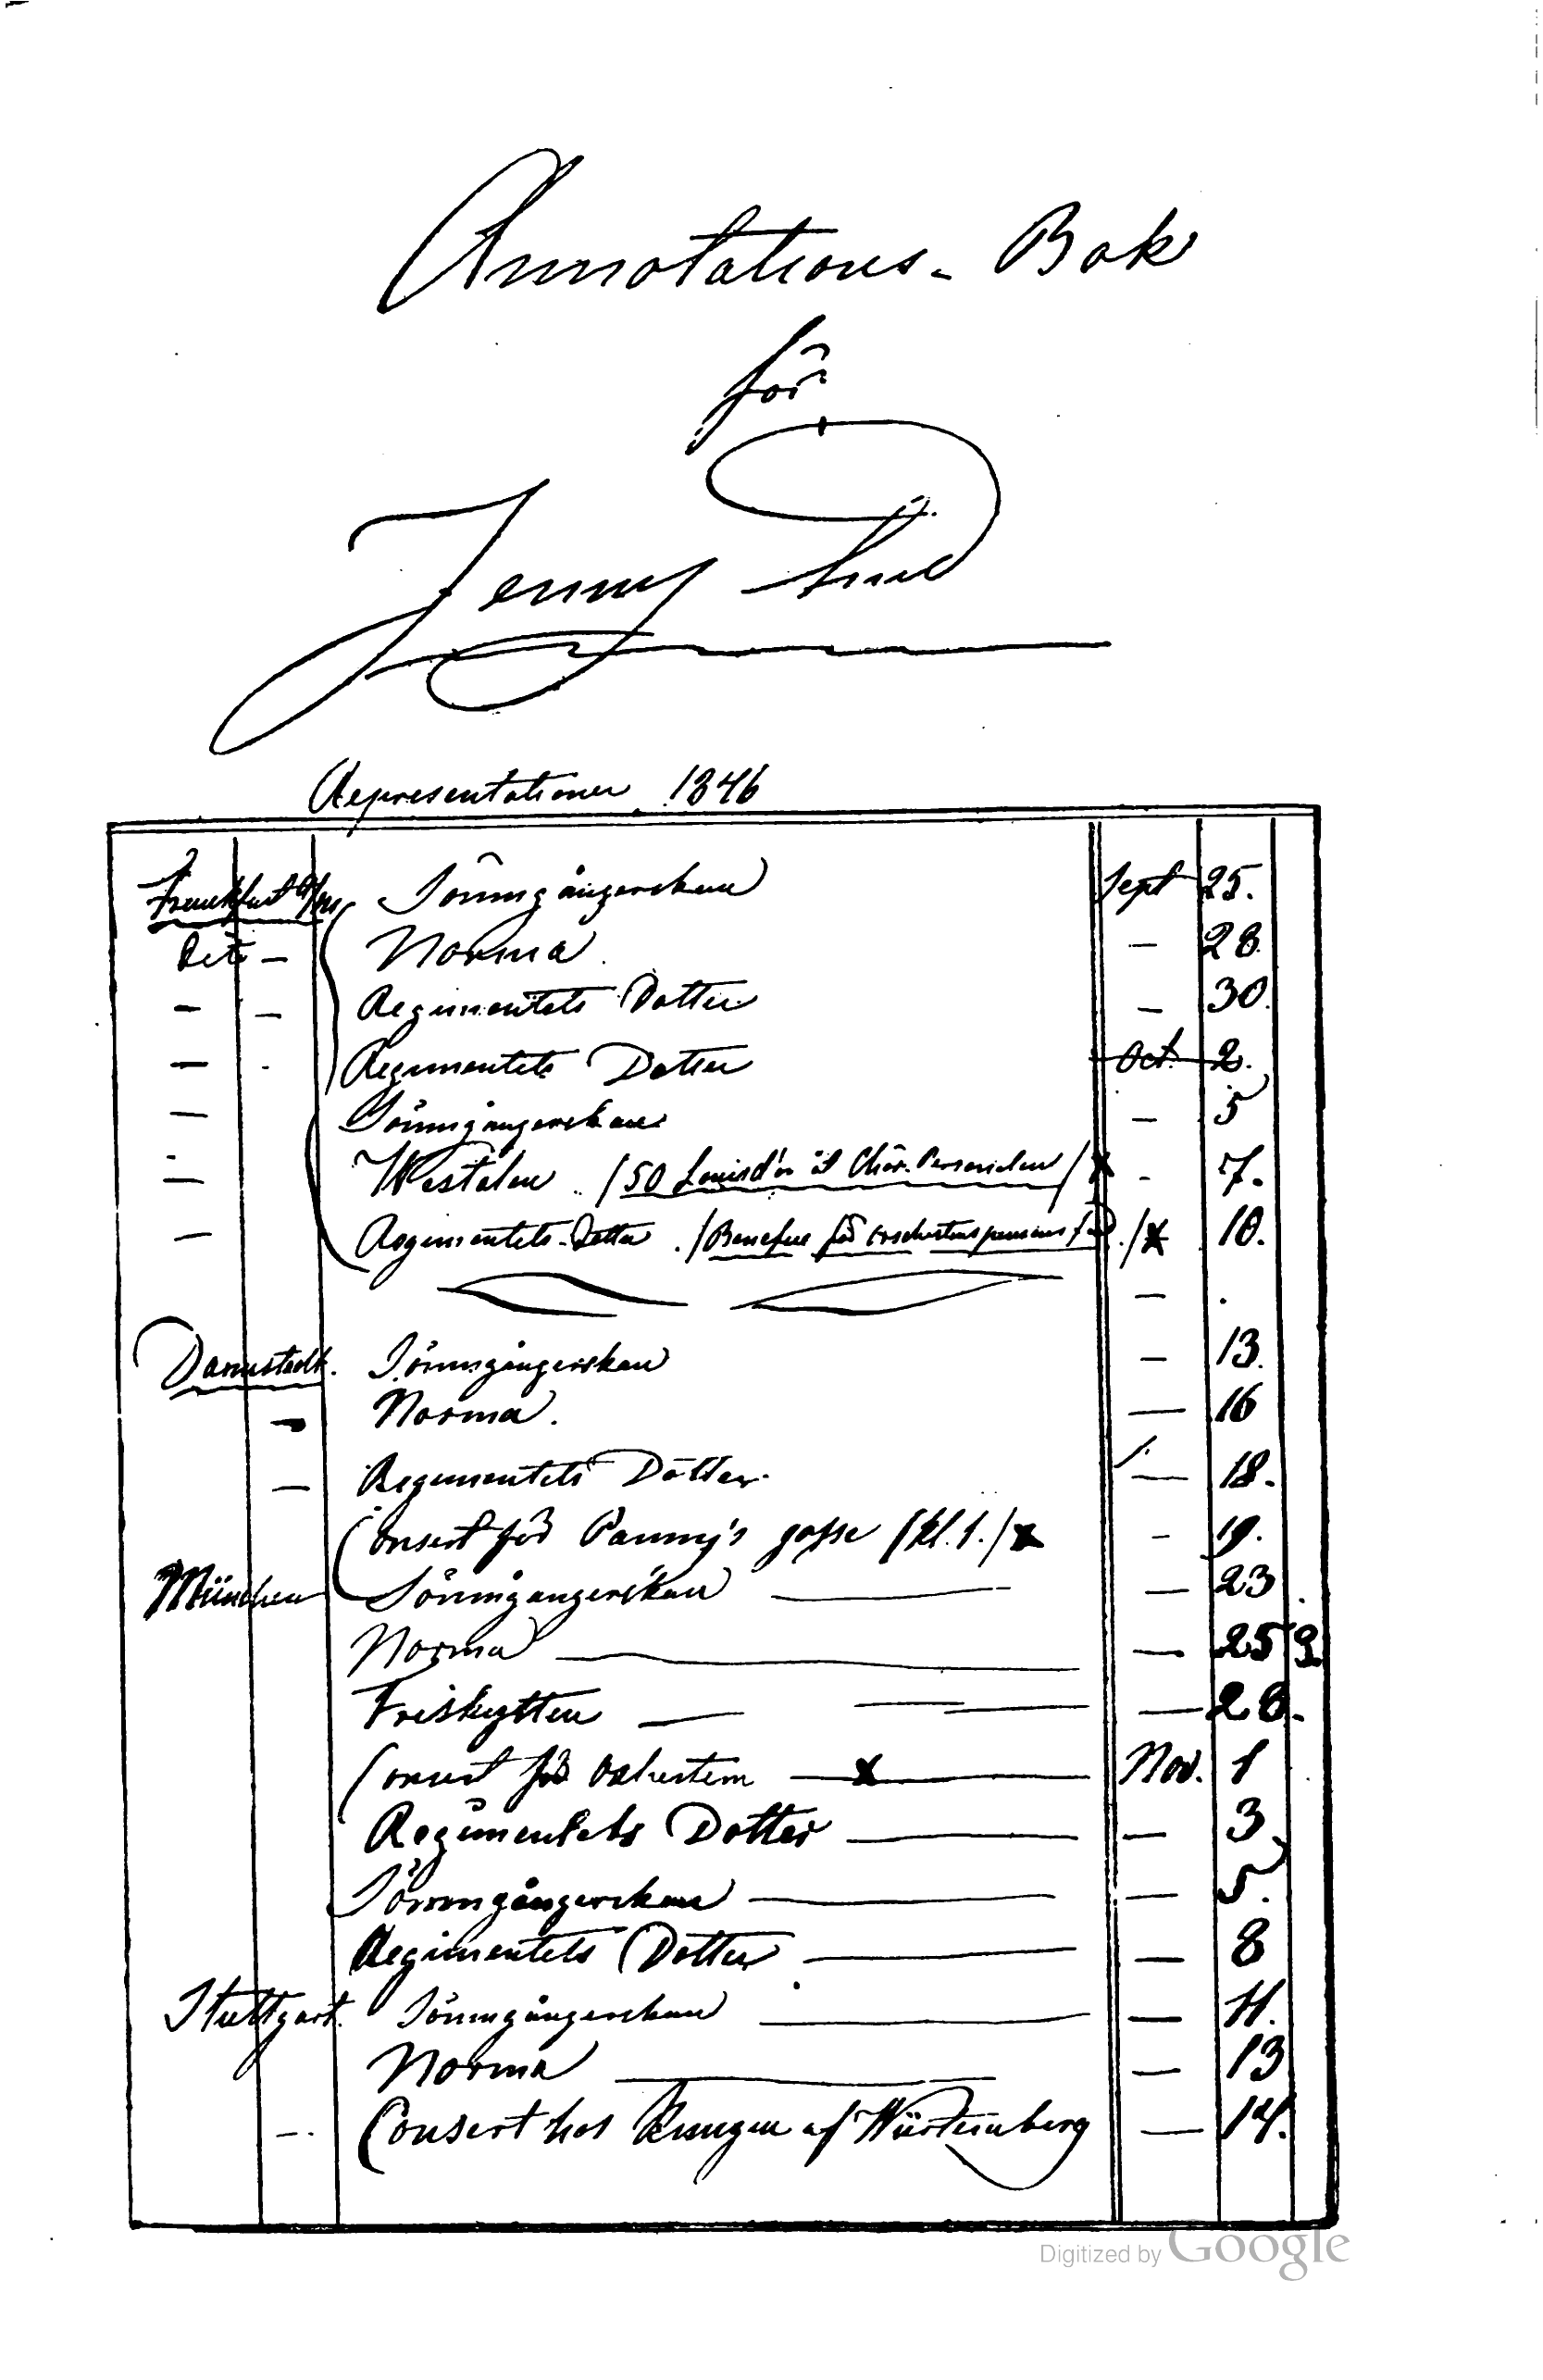 Annotations-Bok
för
Jenny Lind
Representationer 1846
Frankfurt a/m Sömngångerskan Sept 25.
Dito — Norma. — 28.
— — Regimentets Dotter — 30.
— - Regimentets Dotter Oct. 2.
— Sömngångerskan — 5
— Westalen. /50 Louisd'or åt Chör-Personalen/ x - 7.
— Regimentets-Dotter. /Benefice för Orchesterns pensions fond./x 10.
— .
Darmstadt. Sömngångerskan — 13.
— Norma. — 16
— Regimentets Dotter. — 18.
Consert för Panny's gosse /kl. 1./x - 19.
München Sömngångerskan — — 23.
Norma — — 25
Friskytten — — — 28.
Consert för Orkestern — x — Nov. 1
Regimentets Dotter — — 3.
Sömngångerskan — — 5.
Regimentets Dotter — — 8
Stuttgart. Sömngångerskan — — 11.
Norma — — 13
—. Consert hos Kungen af Würtemberg — 14.
Digitized by Google